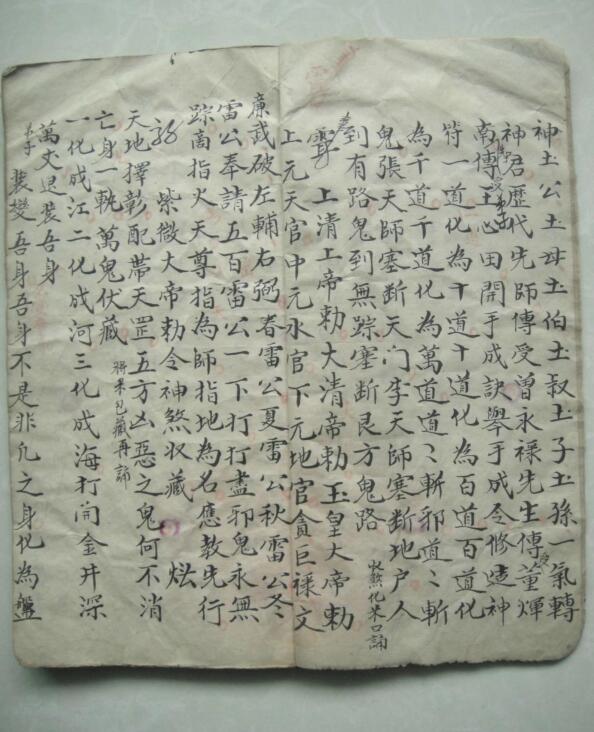 神土公土母土伯土叔土子土孫一氣轉
神君歷代先師傳受曾永祿先生傳董煇
南傳王心田開手成訣舉手成令修造神
符一道化為十道十道化為百道百道化
為千道千道化為萬道道〻斬邪道〻斬
鬼張天師塞斷天门李天師塞斷地户人
到有路鬼到無踪塞斷艮方鬼路
收煞化米口誦
上清上帝勅大清帝勅玉皇大帝勅
上元天官中元水官下元地官貪巨祿文
廉武破左輔右弼春雷公夏雷公秋雷公冬
雷公奉請五百雷公一下打打盡邪鬼永無
踪高指火天尊指為師指地為名應教先行
紫微大帝勅令神煞收藏
天地擇彰配帶天罡五方凶惡之鬼何不消
亡身一軌萬鬼伏藏
將米包藏再誦
一化成江二化成河三化成海打開金井深
萬丈退裝吾身
裝變吾身吾身不是非凡之身化為盤